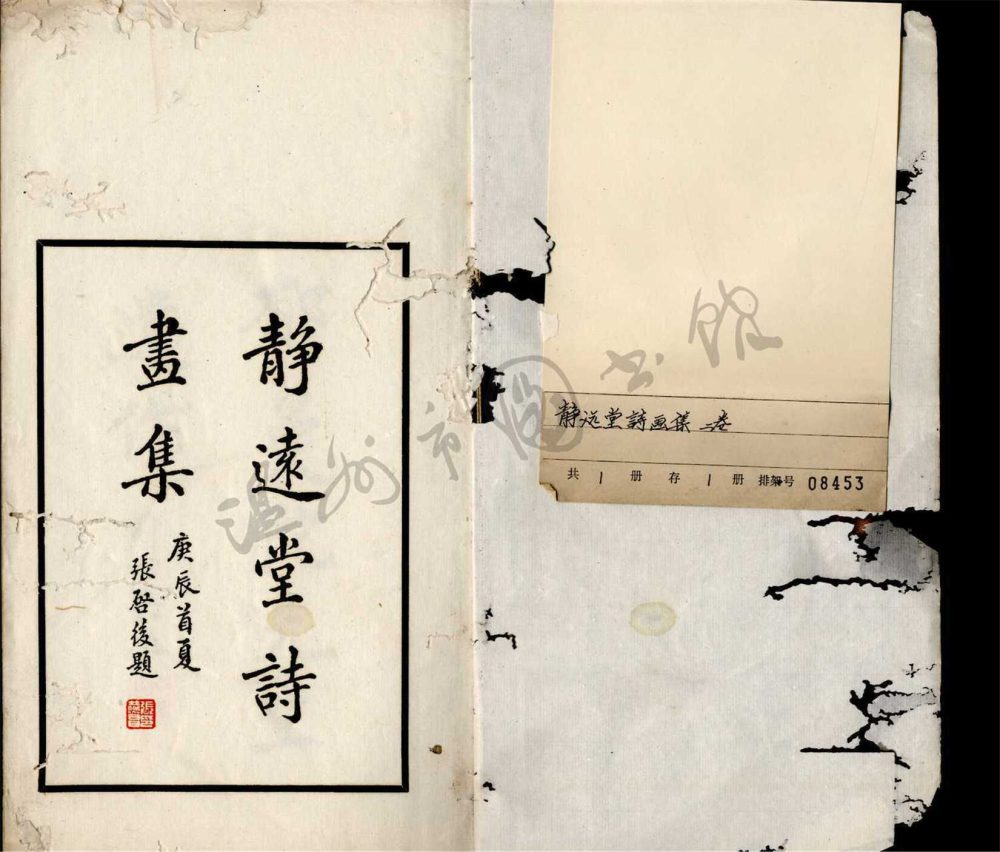 静遠堂詩
畫集
庚辰首夏
張啓後題
静远堂詩画集 二卷
共 1 册 存 1 册 排架号 08453
温州市图书馆